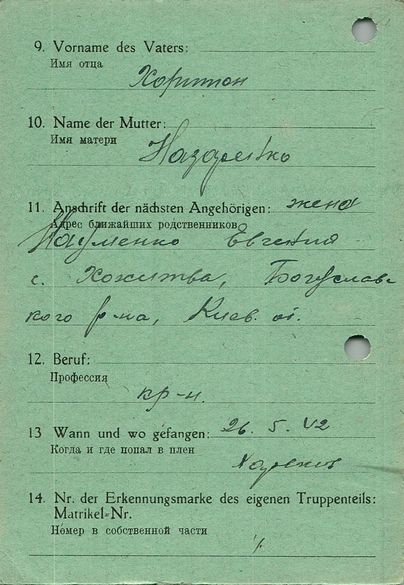 9. Vorname des Vaters:
Имя отца
Харитон
10. Name der Mutter:
Имя матери
Назаренко
11. Anschrift der nächsten Angehörigen: жена
Адрес ближайших родственников
Науменко Евгения
с. Хохитва, Богуслав-
кого р-на, Киев. об.
12. Beruf:
Профессия
кр-н.
13 Wann und wo gefangen: 26. 5. 42
Когда и где попал в плен
Харьков
14. Nr. der Erkennungsmarke des eigenen Truppenteils:
Matrikel-Nr.
Номер в собственной части